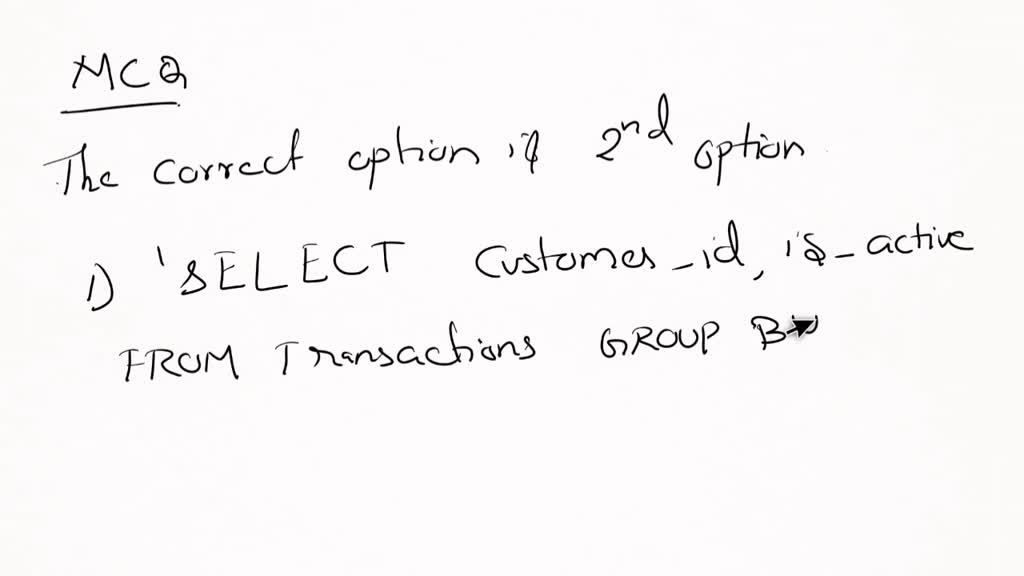 MCQ
The correct option is 2nd option
1) 'SELECT Customer_id, is_active
FROM Transactions GROUP B